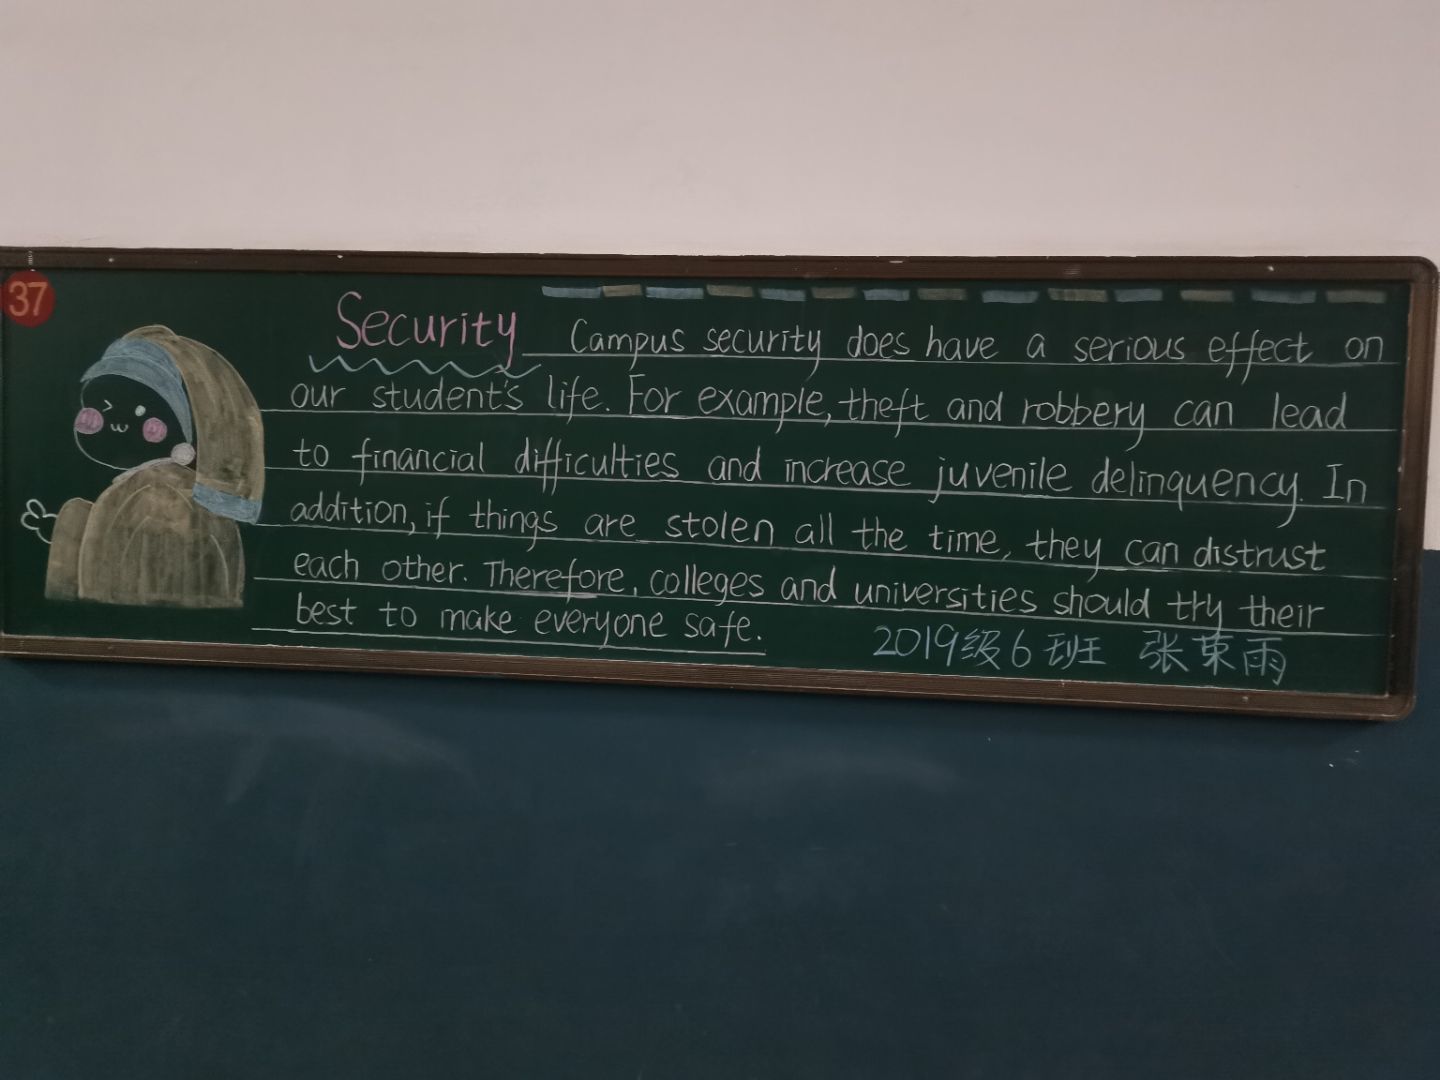 37
Security Campus security does have a serious effect on
our student's life. For example, theft and robbery can lead
to financial difficulties and increase juvenile delinquency. In
addition, if things are stolen all the time, they can distrust
each other. Therefore, colleges and universities should try their
best to make everyone safe.
2019级6班 张东雨